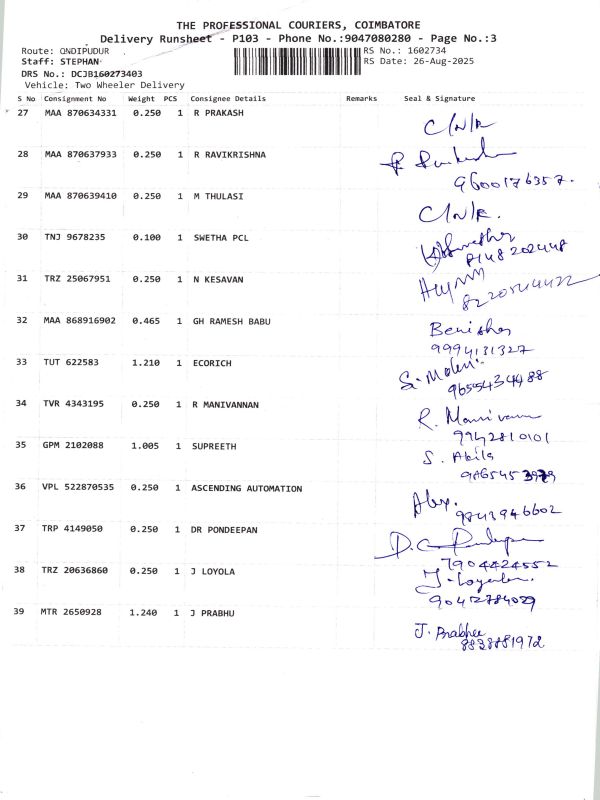 THE PROFESSIONAL COURIERS, COIMBATORE
Delivery Runsheet - P103 - Phone No.:9047080280 - Page No.:3
Route: ONDIPUDUR
RS No.: 1602734
Staff: STEPHAN
RS Date: 26-Aug-2025
DRS No.: DCJB160273403
Vehicle: Two Wheeler Delivery
S No Consignment No Weight PCS Consignee Details Remarks Seal & Signature
27 MAA 870634331 0.250 1 R PRAKASH
C/N/R
28 MAA 870637933 0.250 1 R RAVIKRISHNA
9600176357.
29 MAA 870639410 0.250 1 M THULASI
C/N/R.
30 TNJ 9678235 0.100 1 SWETHA PCL
8148202448
31 TRZ 25067951 0.250 1 N KESAVAN
32 MAA 868916902 0.465 1 GH RAMESH BABU
9994131327
33 TUT 622583 1.210 1 ECORICH
9655434488
34 TVR 4343195 0.250 1 R MANIVANNAN
R.
9942810101
35 GPM 2102088 1.005 1 SUPREETH
S. Abila
36 VPL 522870535 0.250 1 ASCENDING AUTOMATION
Alex.
9843946602
37 TRP 4149050 0.250 1 DR PONDEEPAN
7904424552
38 TRZ 20636860 0.250 1 J LOYOLA
39 MTR 2650928 1.240 1 J PRABHU
J. Prabhu
8838881972